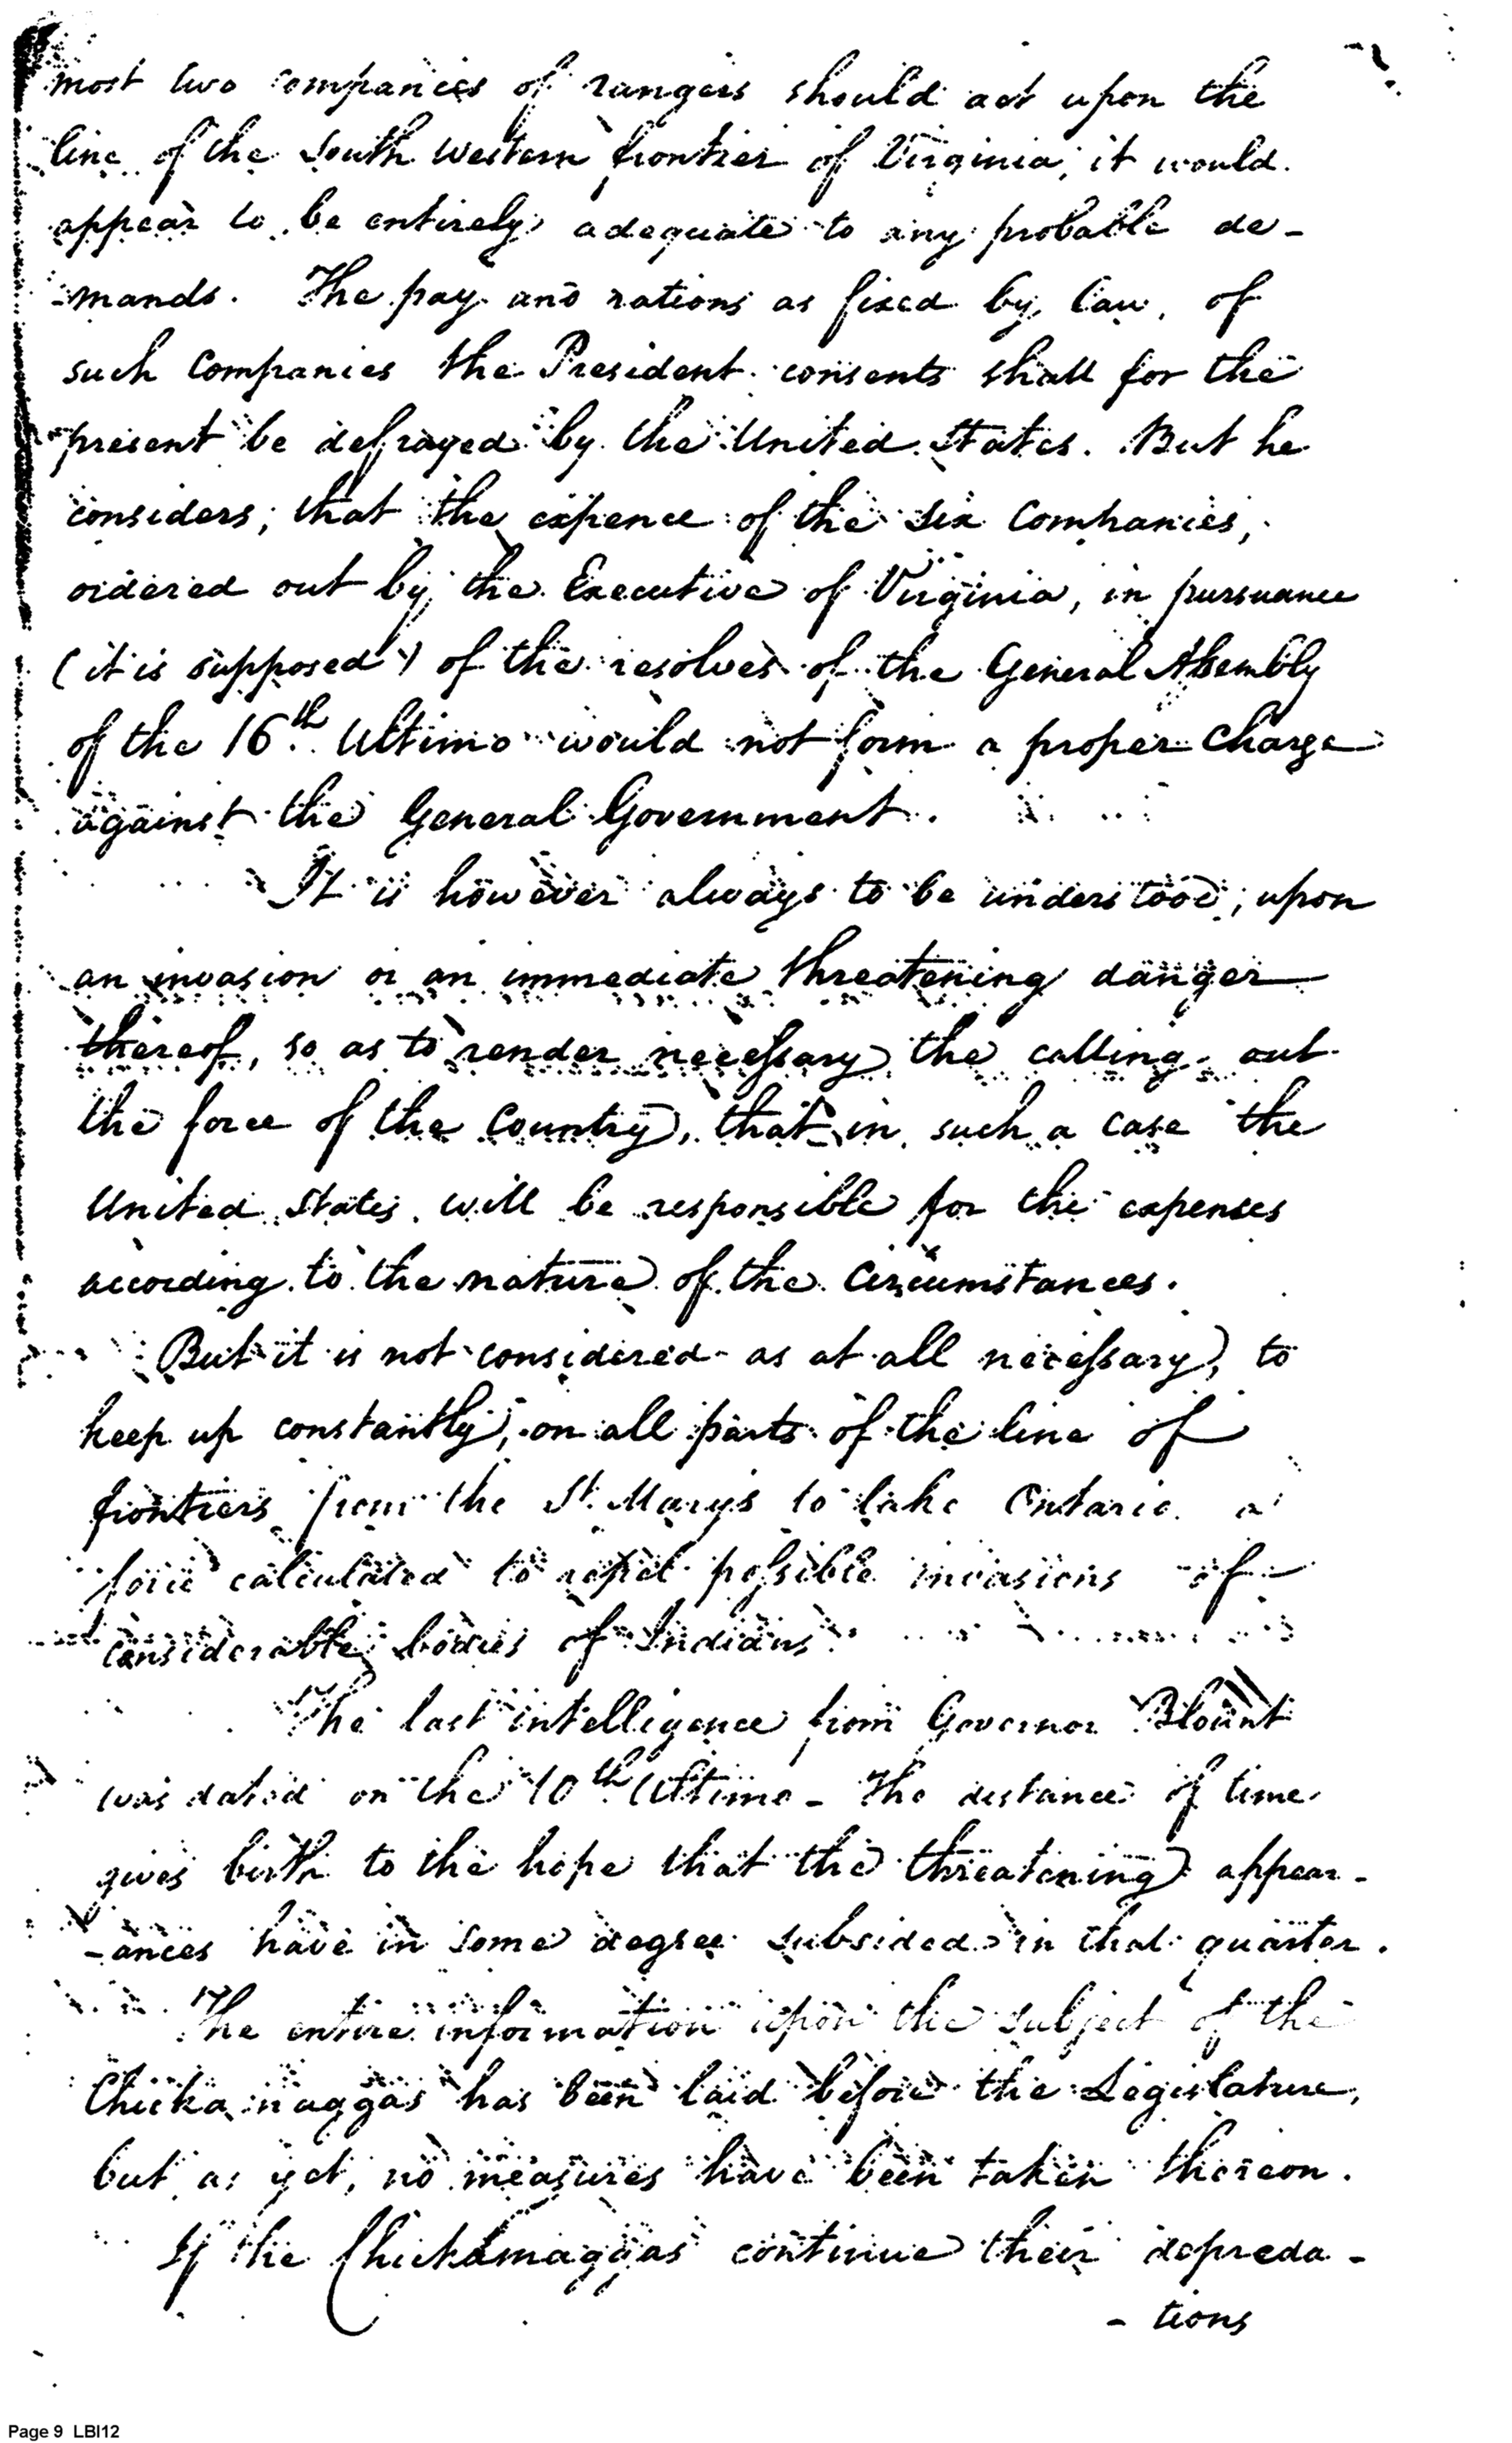 most two companies of rangers should act upon the
line of the South Western frontier of Virginia, it would
appear to be entirely adequate to any probable de-
-mands. The pay and rations as fixed by law, of
such Companies the President consents shall for the
present be defrayed by the United States. But he
considers, that the expence of the six Companies,
ordered out by the Executive of Virginia, in pursuance
(it is supposed) of the resolves of the General Assembly
of the 16th Ultimo would not form a proper Charge
against the General Government.
It is however always to be understood, upon
an invasion or an immediate threatening danger
thereof, so as to render necessary the calling out
the force of the Country, that in such a case the
United States will be responsible for the expenses
according to the nature of the Circumstances.
But it is not considered as at all necessary, to
keep up constantly, on all parts of the line of
frontiers from the St. Marys to lake Ontario a
force calculated to repel possible invasions of
considerable bodies of Indians.
The last intelligence from Governor Blount
was dated on the 10th Ultimo - The distance of time
gives birth to the hope that the threatening appear-
-ances have in some degree subsided in that quarter.
The entire information upon the subject of the
Chickamaggas has been laid before the Legislature,
but as yet, no measures have been taken thereon.
If the Chickamaggas continue their depreda-
-tions
Page 9 LBI12